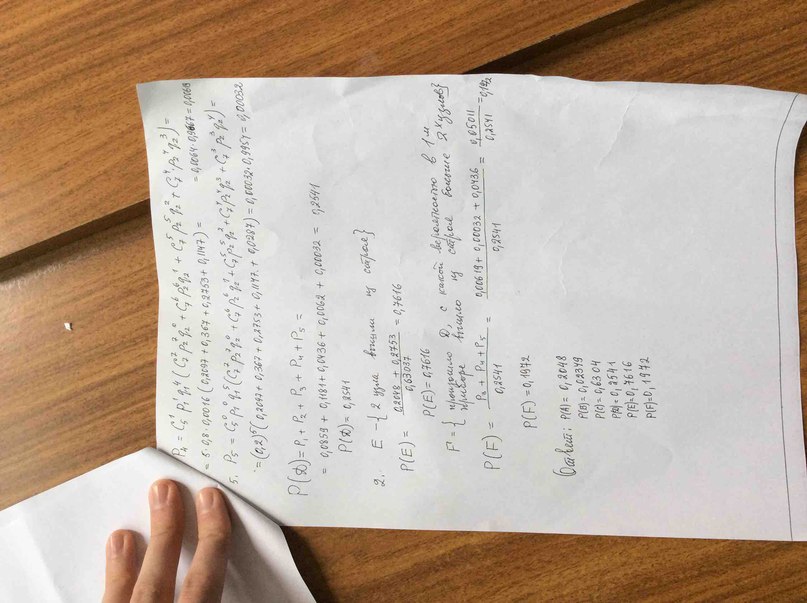 P₄ = C₅¹ p₁¹ q₁⁴ (C₇⁷ p₂⁷ q₂⁰ + C₇⁶ p₂⁶ q₂¹ + C₇⁵ p₂⁵ q₂² + C₇⁴ p₂⁴ q₂³) =
= 5·0,8·0,0016 (0,2097 + 0,367 + 0,2753 + 0,1147) =
= 0,0064·0,9667 = 0,0069
5. P₅ = C₅⁰ p₁⁰ q₁⁵ (C₇⁷ p₂⁷ q₂⁰ + C₇⁶ p₂⁶ q₂¹ + C₇⁵ p₂⁵ q₂² + C₇⁴ p₂⁴ q₂³ + C₇³ p₂³ q₂⁴) =
= (0,2)⁵ (0,2097 + 0,367 + 0,2753 + 0,1147 + 0,0287) = 0,00032·0,9954 = 0,00032
P(D) = P₁ + P₂ + P₃ + P₄ + P₅ =
= 0,0859 + 0,1181 + 0,0436 + 0,0062 + 0,00032 = 0,2541
P(D) = 0,2541
2. E - {2 узла вышли из строя}
P(E) = (0,2048 + 0,2753) / 0,63037 = 0,7616
P(E) = 0,7616
F = {произошло D, с какой вероятностью в 1м
приборе вышло из строя больше 2х узлов}
P(F) = (P₃ + P₄ + P₅) / 0,2541 = (0,00619 + 0,00032 + 0,0436) / 0,2541 = 0,05011 / 0,2541 = 0,1972
P(F) = 0,1972
Ответ: P(A) = 0,2048
P(B) = 0,02349
P(C) = 0,6304
P(D) = 0,2541
P(E) = 0,7616
P(F) = 0,1972